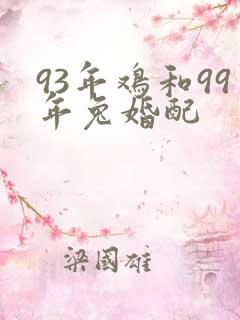 93年鸡和99
年兔婚配
梁国雄